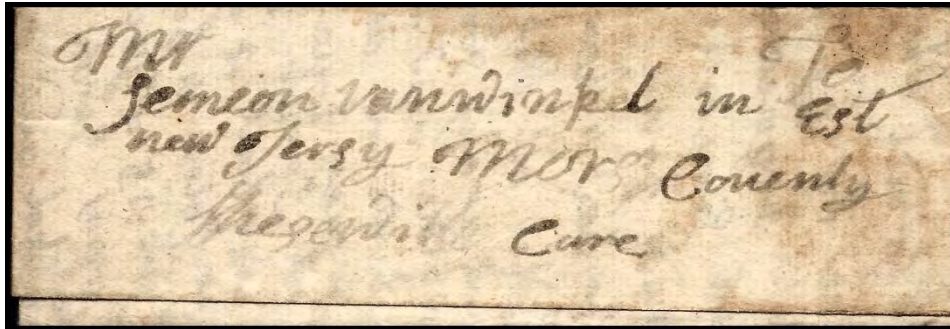 Mr To
Semeon vanwinkel in Est
new Jersy Mors Couenty
Care